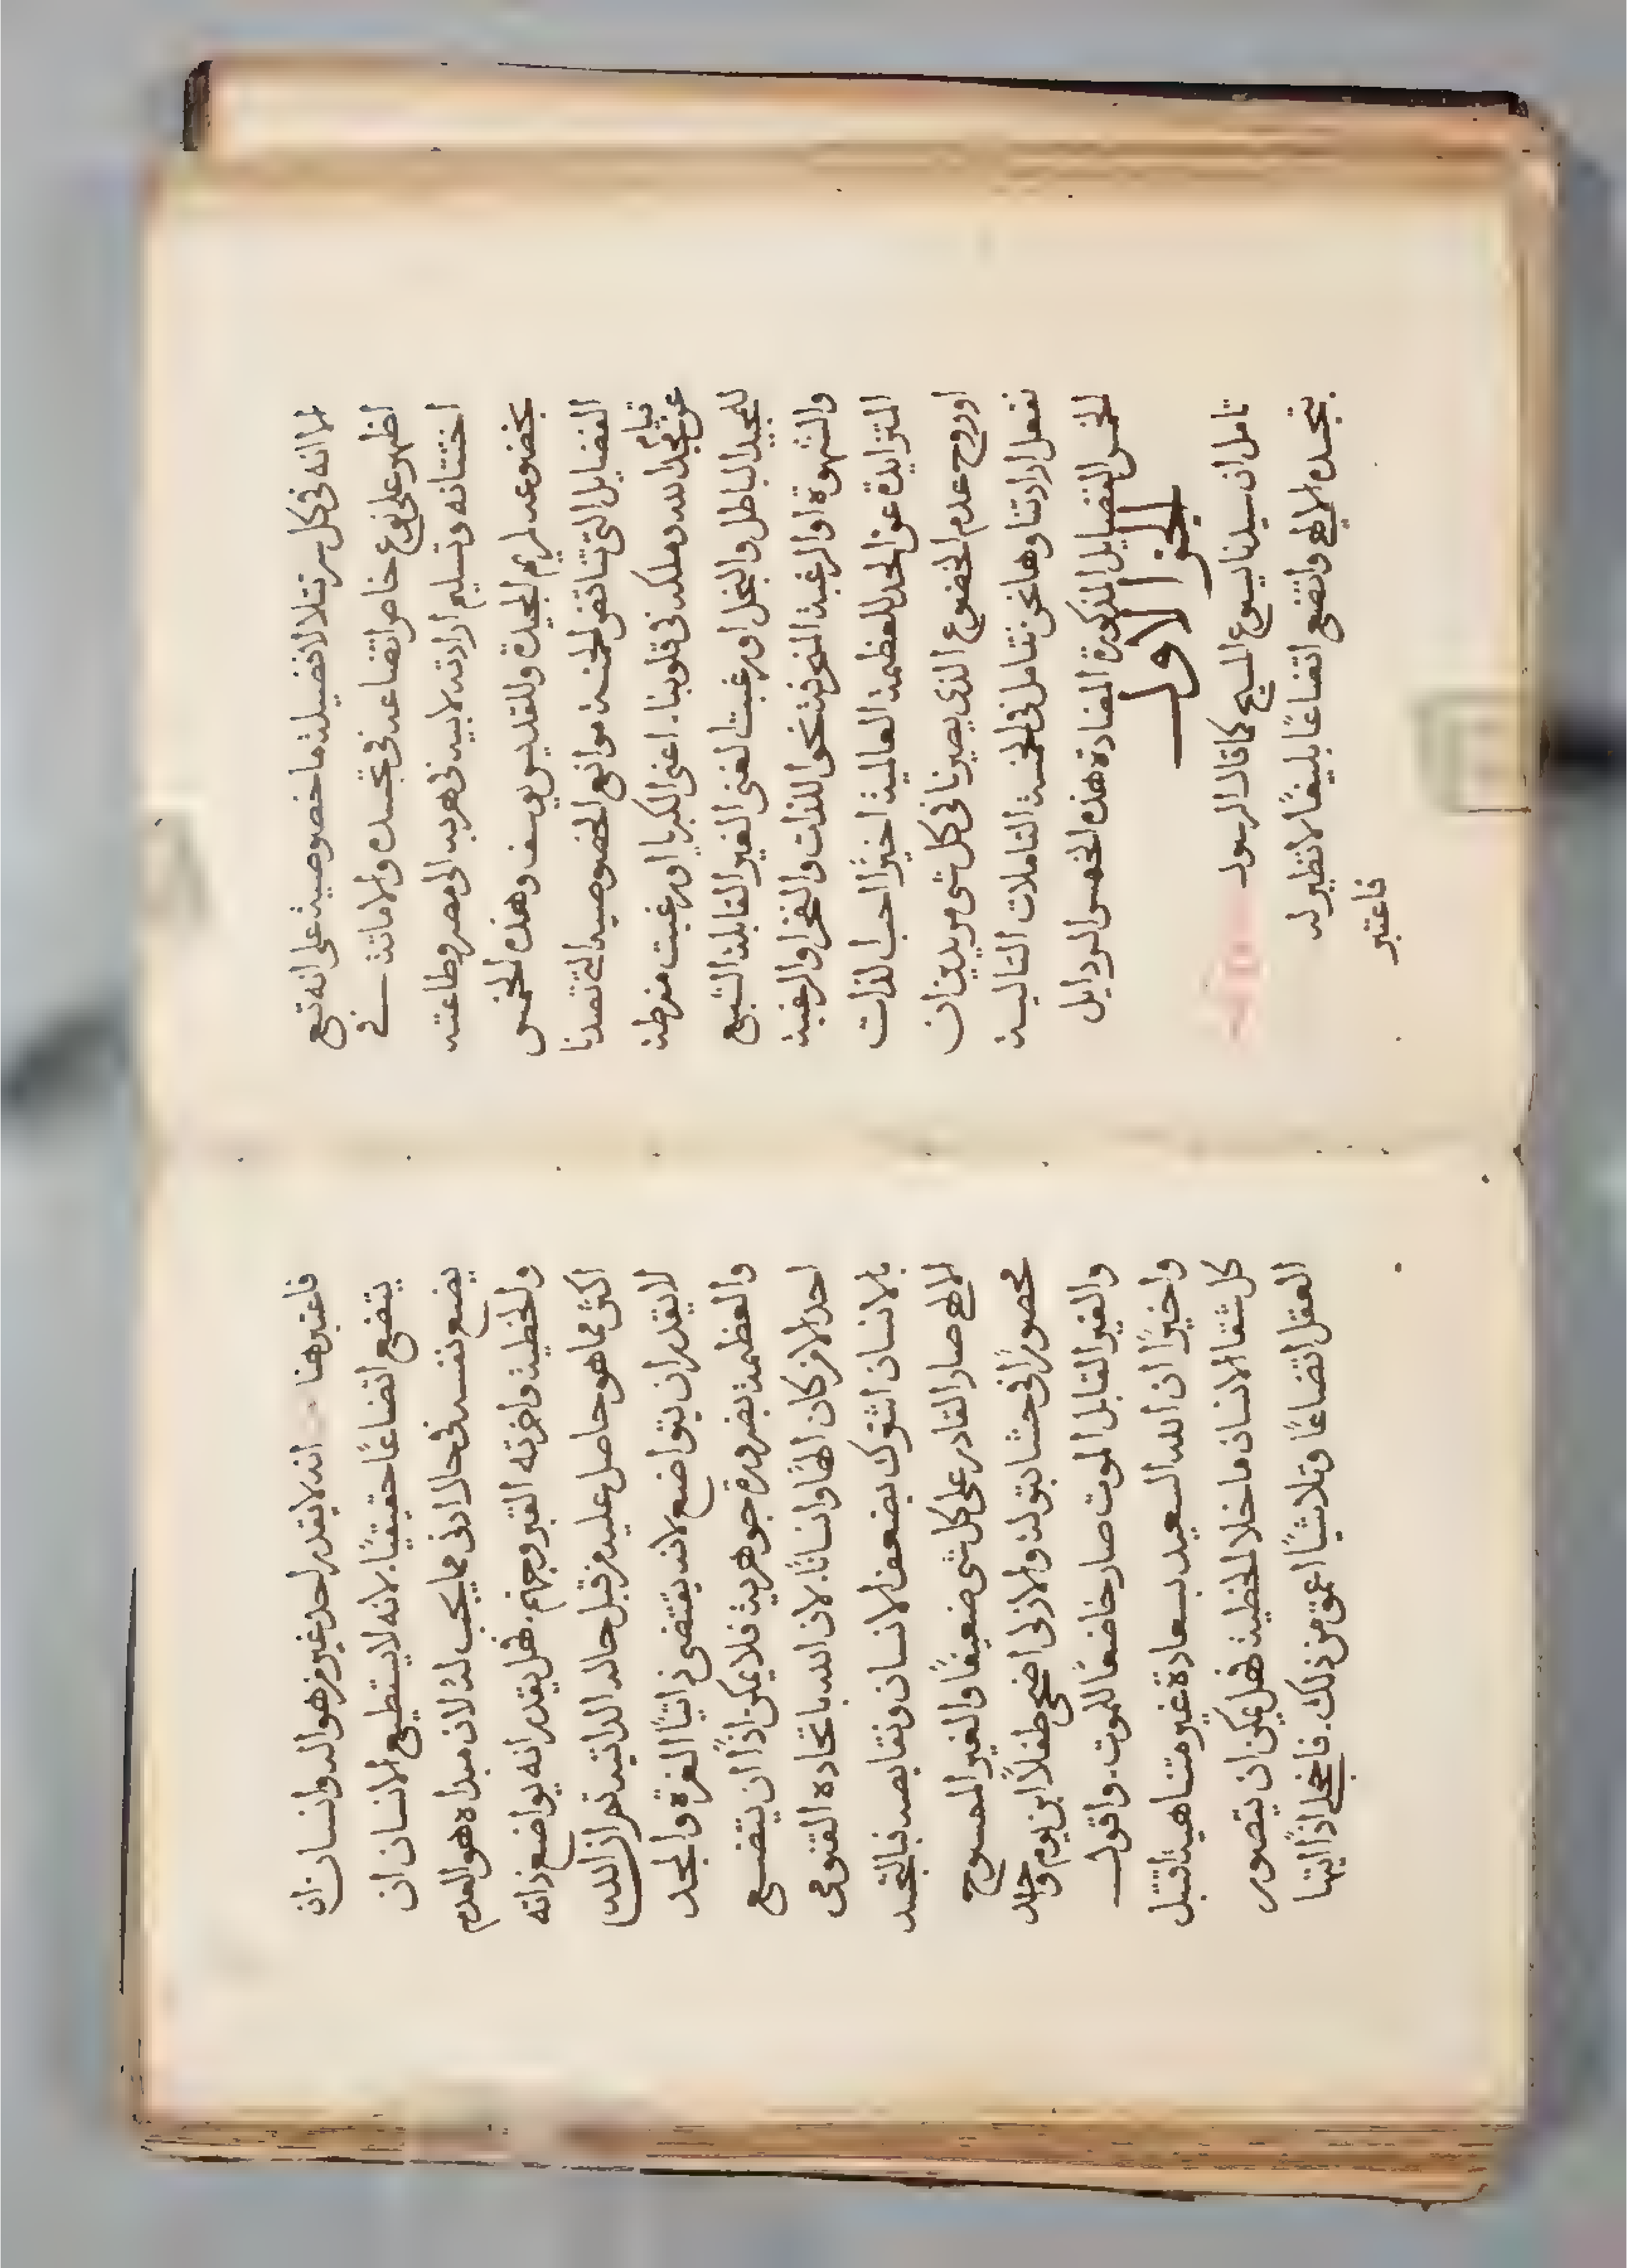 لما انه في كل سر تتلالا فضيلة ما خصوصية على انه تع
اظهر على نوع خاص اتضاعه في تجسده والاماتة في
اختتانه وتسليم ارادته لابيه في هربه الى مصر وطاعته
بخضوعه لمريم المجيدة وللقديس يوسف وهذه الخمس
الفضايل التي تناقض الخمسة موانع الخصوصية التي تصدنا
عن تمجد الله وملكه في قلوبنا. اعني الكبريا او رغبت مفرطة
قيام
للمجد الباطل والبخل او رغبت الغنى الغير القابلة الشبع
والشهوة او الرغبة المنحرفة نحو اللذات والفخر او الرغبة
المتزايدة عن الحد للعظمة العالمية اخيرًا حب الذات
او روح عدم الخضوع الذي يصيرنا في كل شي مريدين ان
نفعل ارادتنا وها نحن نتامل في الخمسة التاملات التالية
الخمس الفضايل المذكورة المضادة هذه الخمس الردايل
الجز الاول
تامل ان سيدنا يسوع المسيح كما قال الرسول
بتجسده الالهي واتضع اتضاعًا بليغًا لا نظير له
فاعتبر
فاعتبر هنا انه لا يقدر احد غير من هو اله وانسان ان
يتضع اتضاعًا حقيقيًا. لانه لا يستطيع الانسان ان
يضع نفسه في حال ادنى مما يجب له لان مبداه هو العدم
والخطية واخرته القبر وجهنم. فهل يقدر انه يواضع ذاته
اكثر مما هو حاصل عليه من قبل حاله الذاتية ثم ان الله
لا يقدر ان يتواضع لانه يقتضي ذاتيًا العزة والمجد
والعظمة بضرورة جوهرية فلا يمكن اذًا ان يتضع
احد الا من كان الهًا وانسانًا. لان الله باتحاده القنومي
بالانسان اشترك بضعف الانسان ونقايصه فبالتجسد
الاله صار القادر على كل شي ضعيفًا والغير المحسوح
محصورًا في حشا بتولة والازلي اضحى طفلاً ابن يوم واحد
والغير القابل الموت صار خاضعًا للموت. واقول
واخيرًا ان الله السعيد بسعادة غير متناهية اقتبل
كل شقا الانسان ما خلا الخطية فهل يمكن ان يتصور
العقل اتضاعًا وتلاشيًا اعمق من ذلك. فاخجلي اذًا ايتها